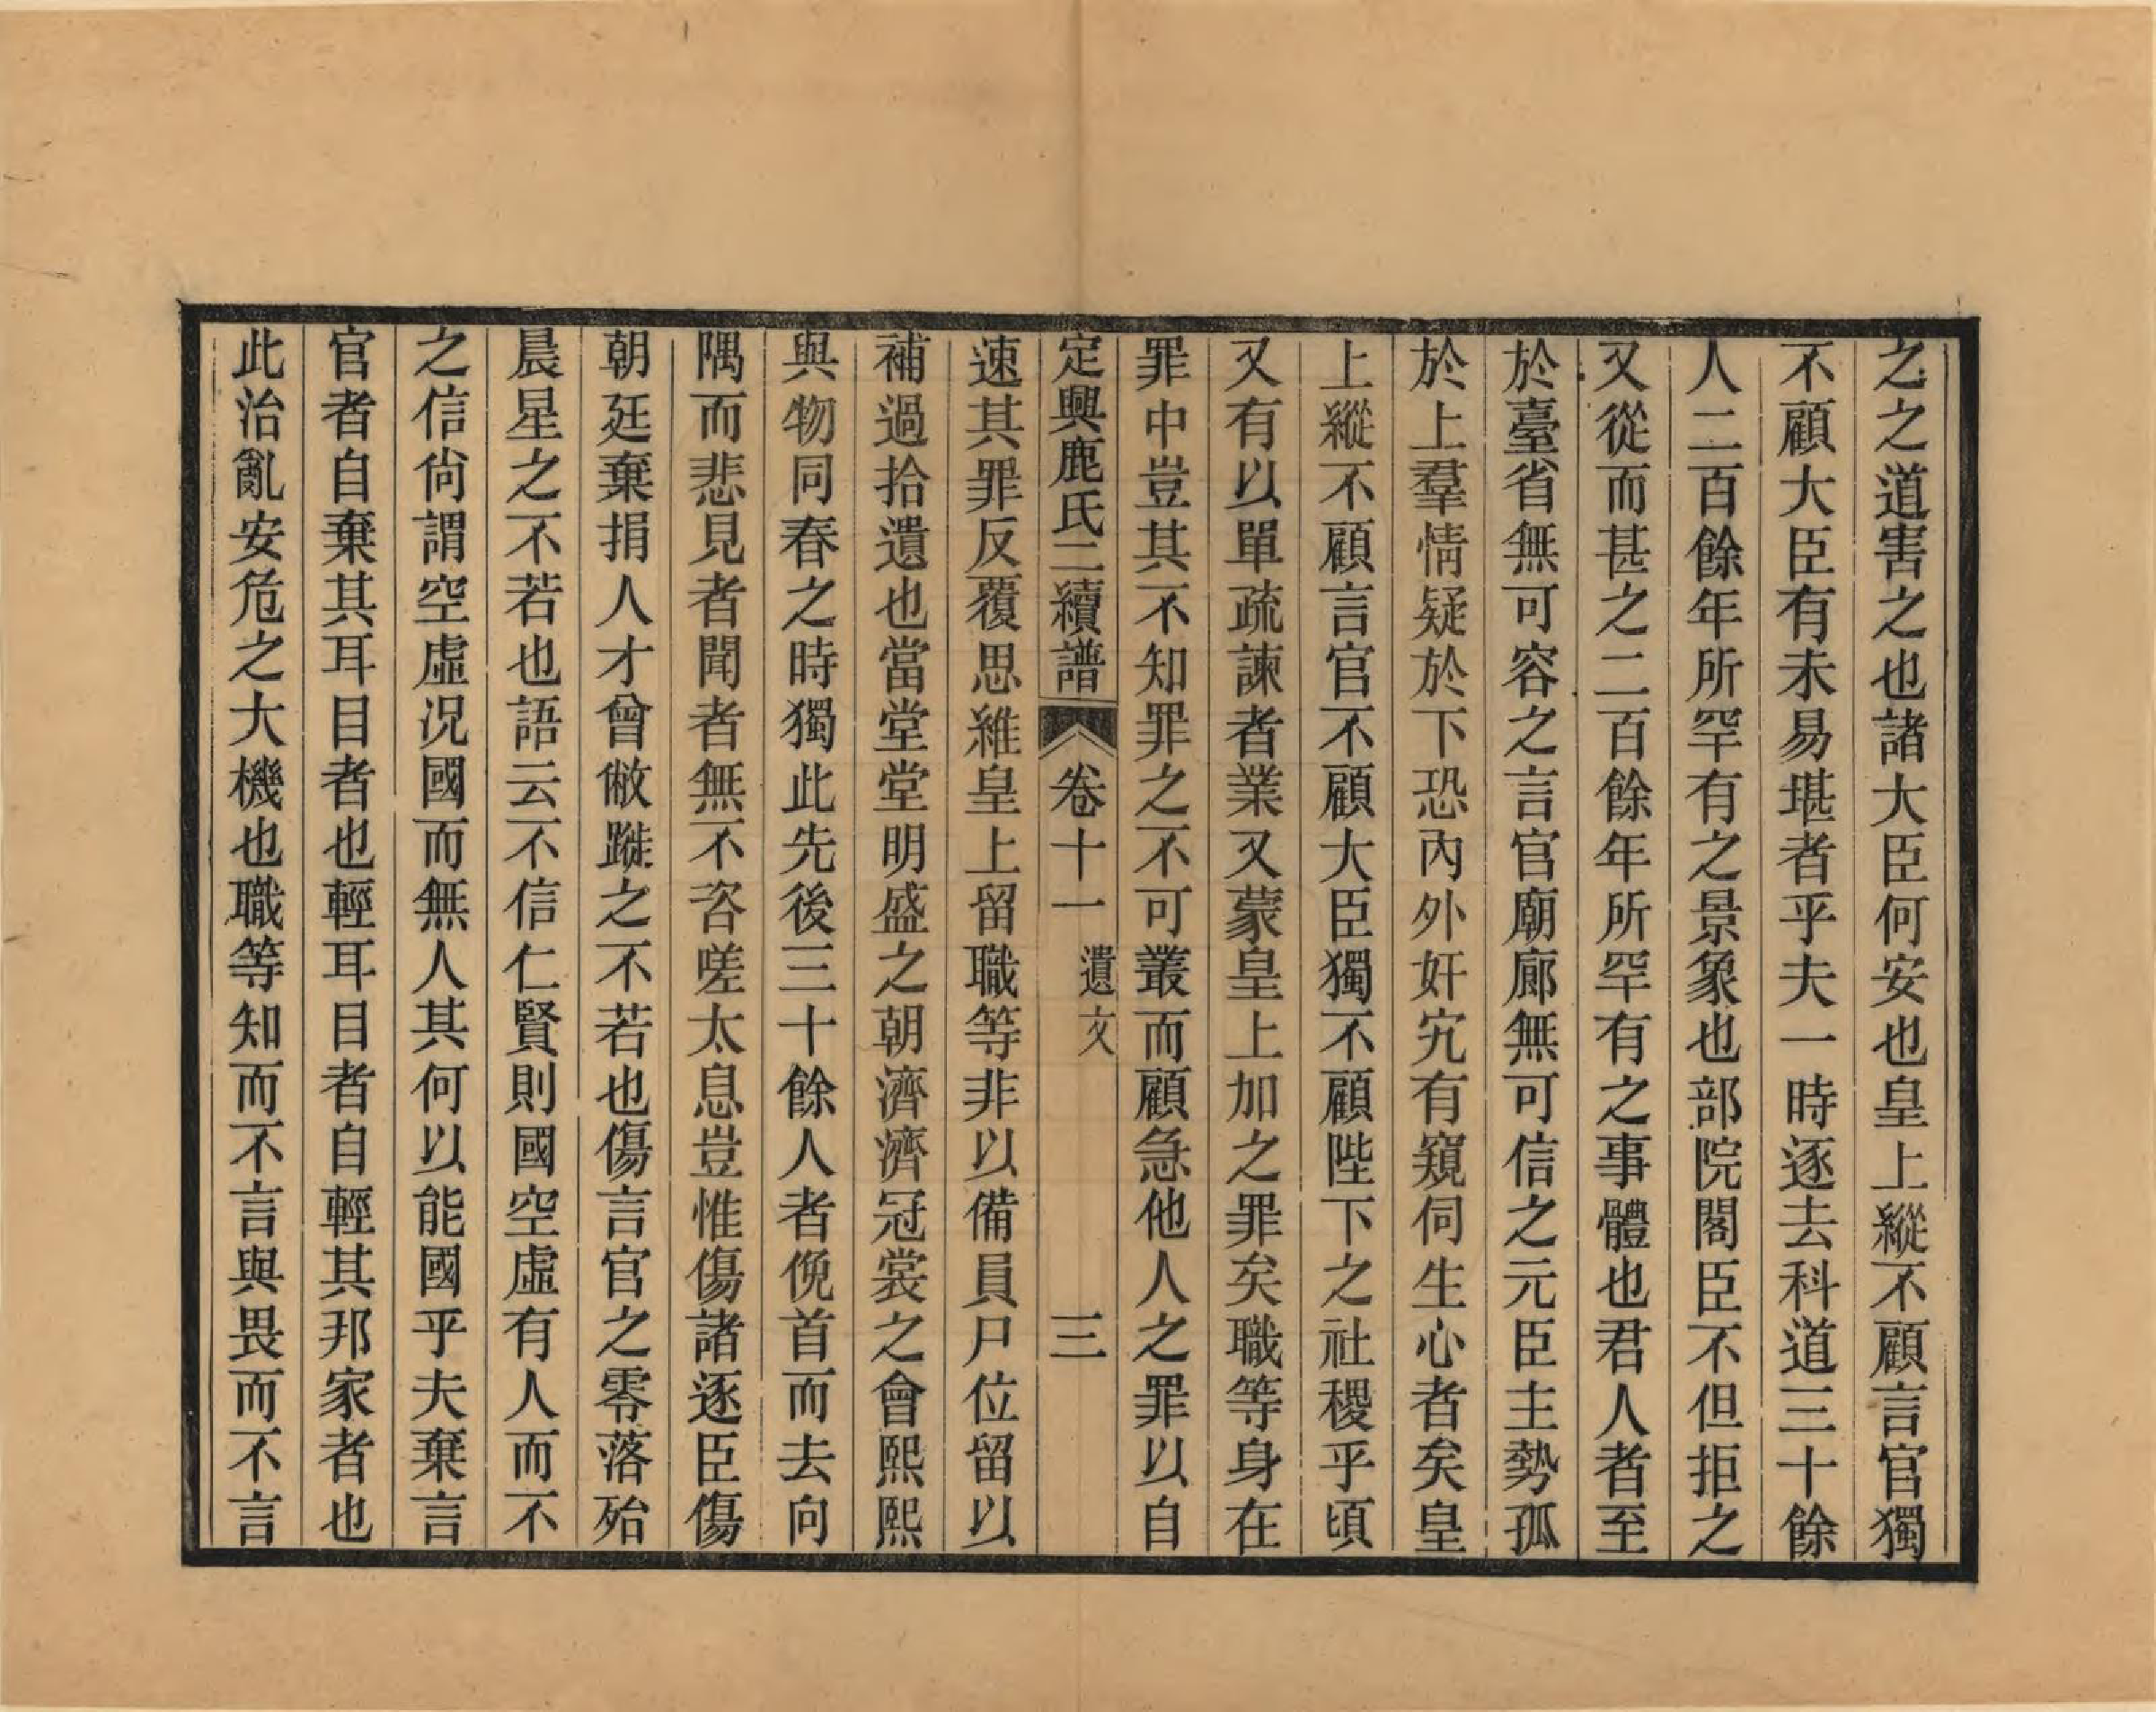 之之道害之也諸大臣何安也皇上縱不顧言官獨
不顧大臣有未易堪者乎夫一時逐去科道三十餘
人二百餘年所罕有之景象也部院閣臣不但拒之
又從而甚之二百餘年所罕有之事體也君人者至
於臺省無可容之言官廟廊無可信之元臣主勢孤
於上羣情疑於下恐內外奸宄有窺伺生心者矣皇
上縱不顧言官不顧大臣獨不顧陛下之社稷乎頃
又有以單疏諫者業又蒙皇上加之罪矣職等身在
罪中豈其不知罪之不可叢而顧急他人之罪以自
定興鹿氏二續譜 卷十一 遺文 三
速其罪反覆思維皇上留職等非以備員尸位留以
補過拾遺也當堂堂明盛之朝濟濟冠裳之會熙熙
與物同春之時獨此先後三十餘人者俛首而去向
隅而悲見者聞者無不咨嗟太息豈惟傷諸逐臣傷
朝廷棄捐人才曾敝蹝之不若也傷言官之零落殆
晨星之不若也語云不信仁賢則國空虛有人而不
之信尙謂空虛况國而無人其何以能國乎夫棄言
官者自棄其耳目者也輕耳目者自輕其邦家者也
此治亂安危之大機也職等知而不言與畏而不言